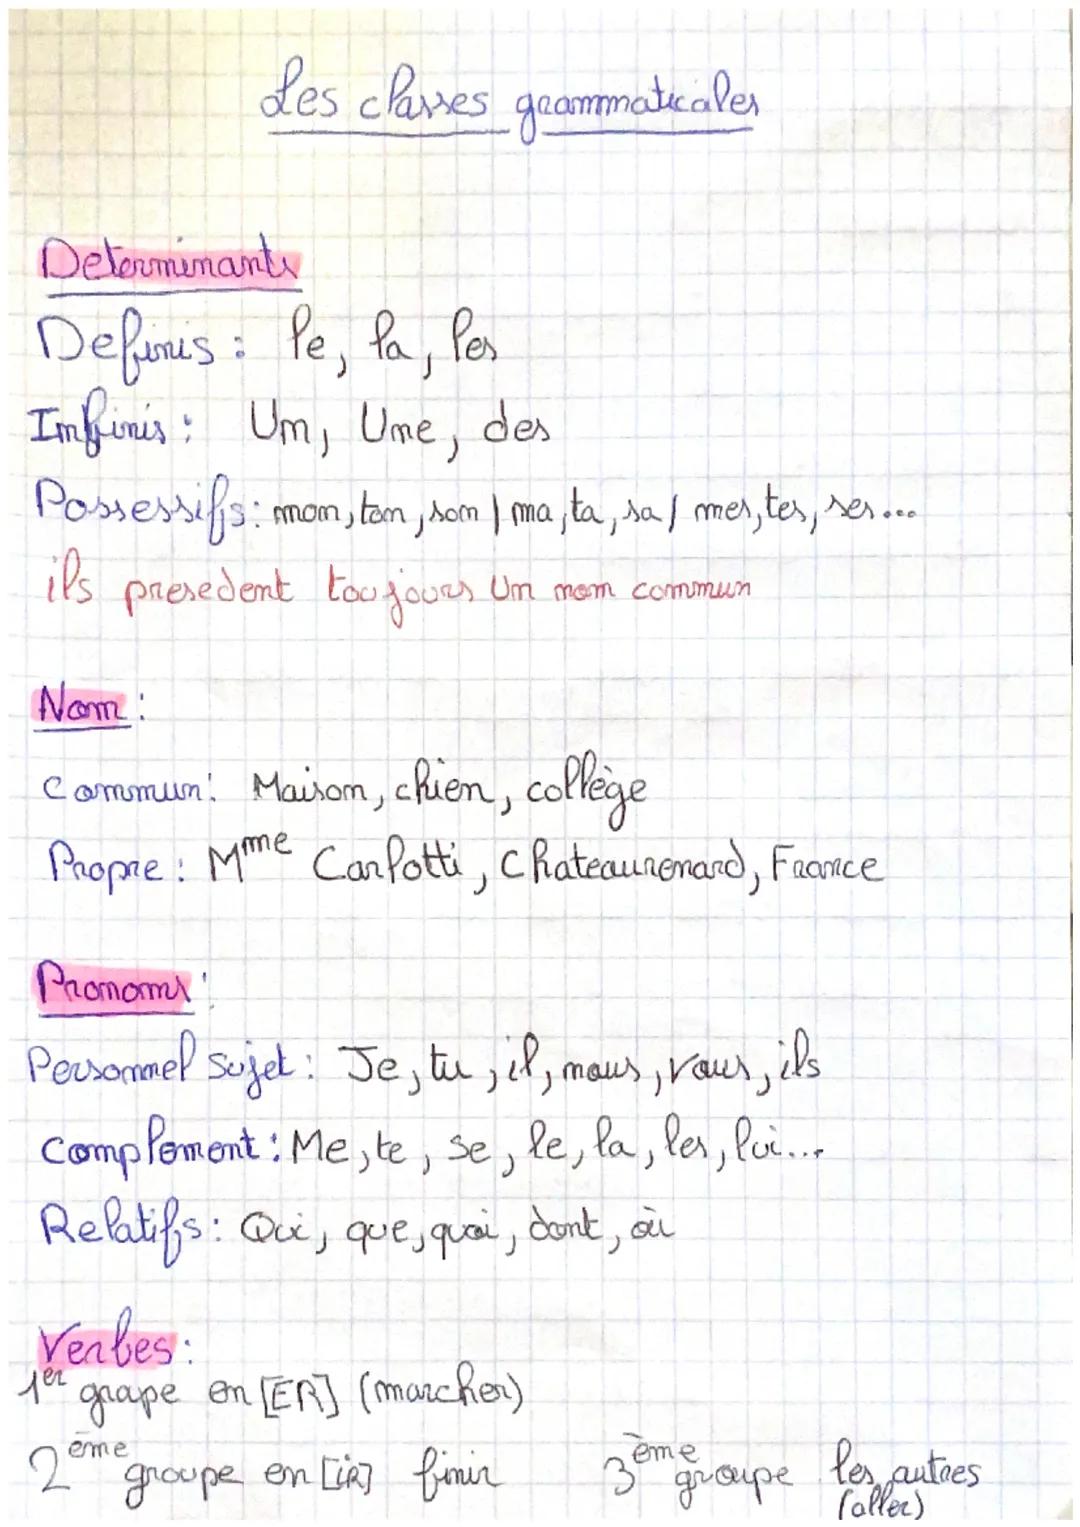 Les classes grammaticales
Determinants
Definis : le, la, les
Infinis : Un, Une, des
Possessifs : mon, ton, son / ma, ta, sa / mes, tes, ses...
ils presedent toujours Un nom commun
Nom :
Commun : Maison, chien, collège
Propre : Mme Carlotti, Chateaurenard, France
Pronoms :
Personnel Sujet : Je, tu, il, nous, vous, ils
Complement : Me, te, se, le, la, les, lui...
Relatifs : Qui, que, quoi, dont, où
Verbes :
1er grape en [ER] (marcher)
2ème groupe en [iR] finir 3ème groupe les autres
(aller)